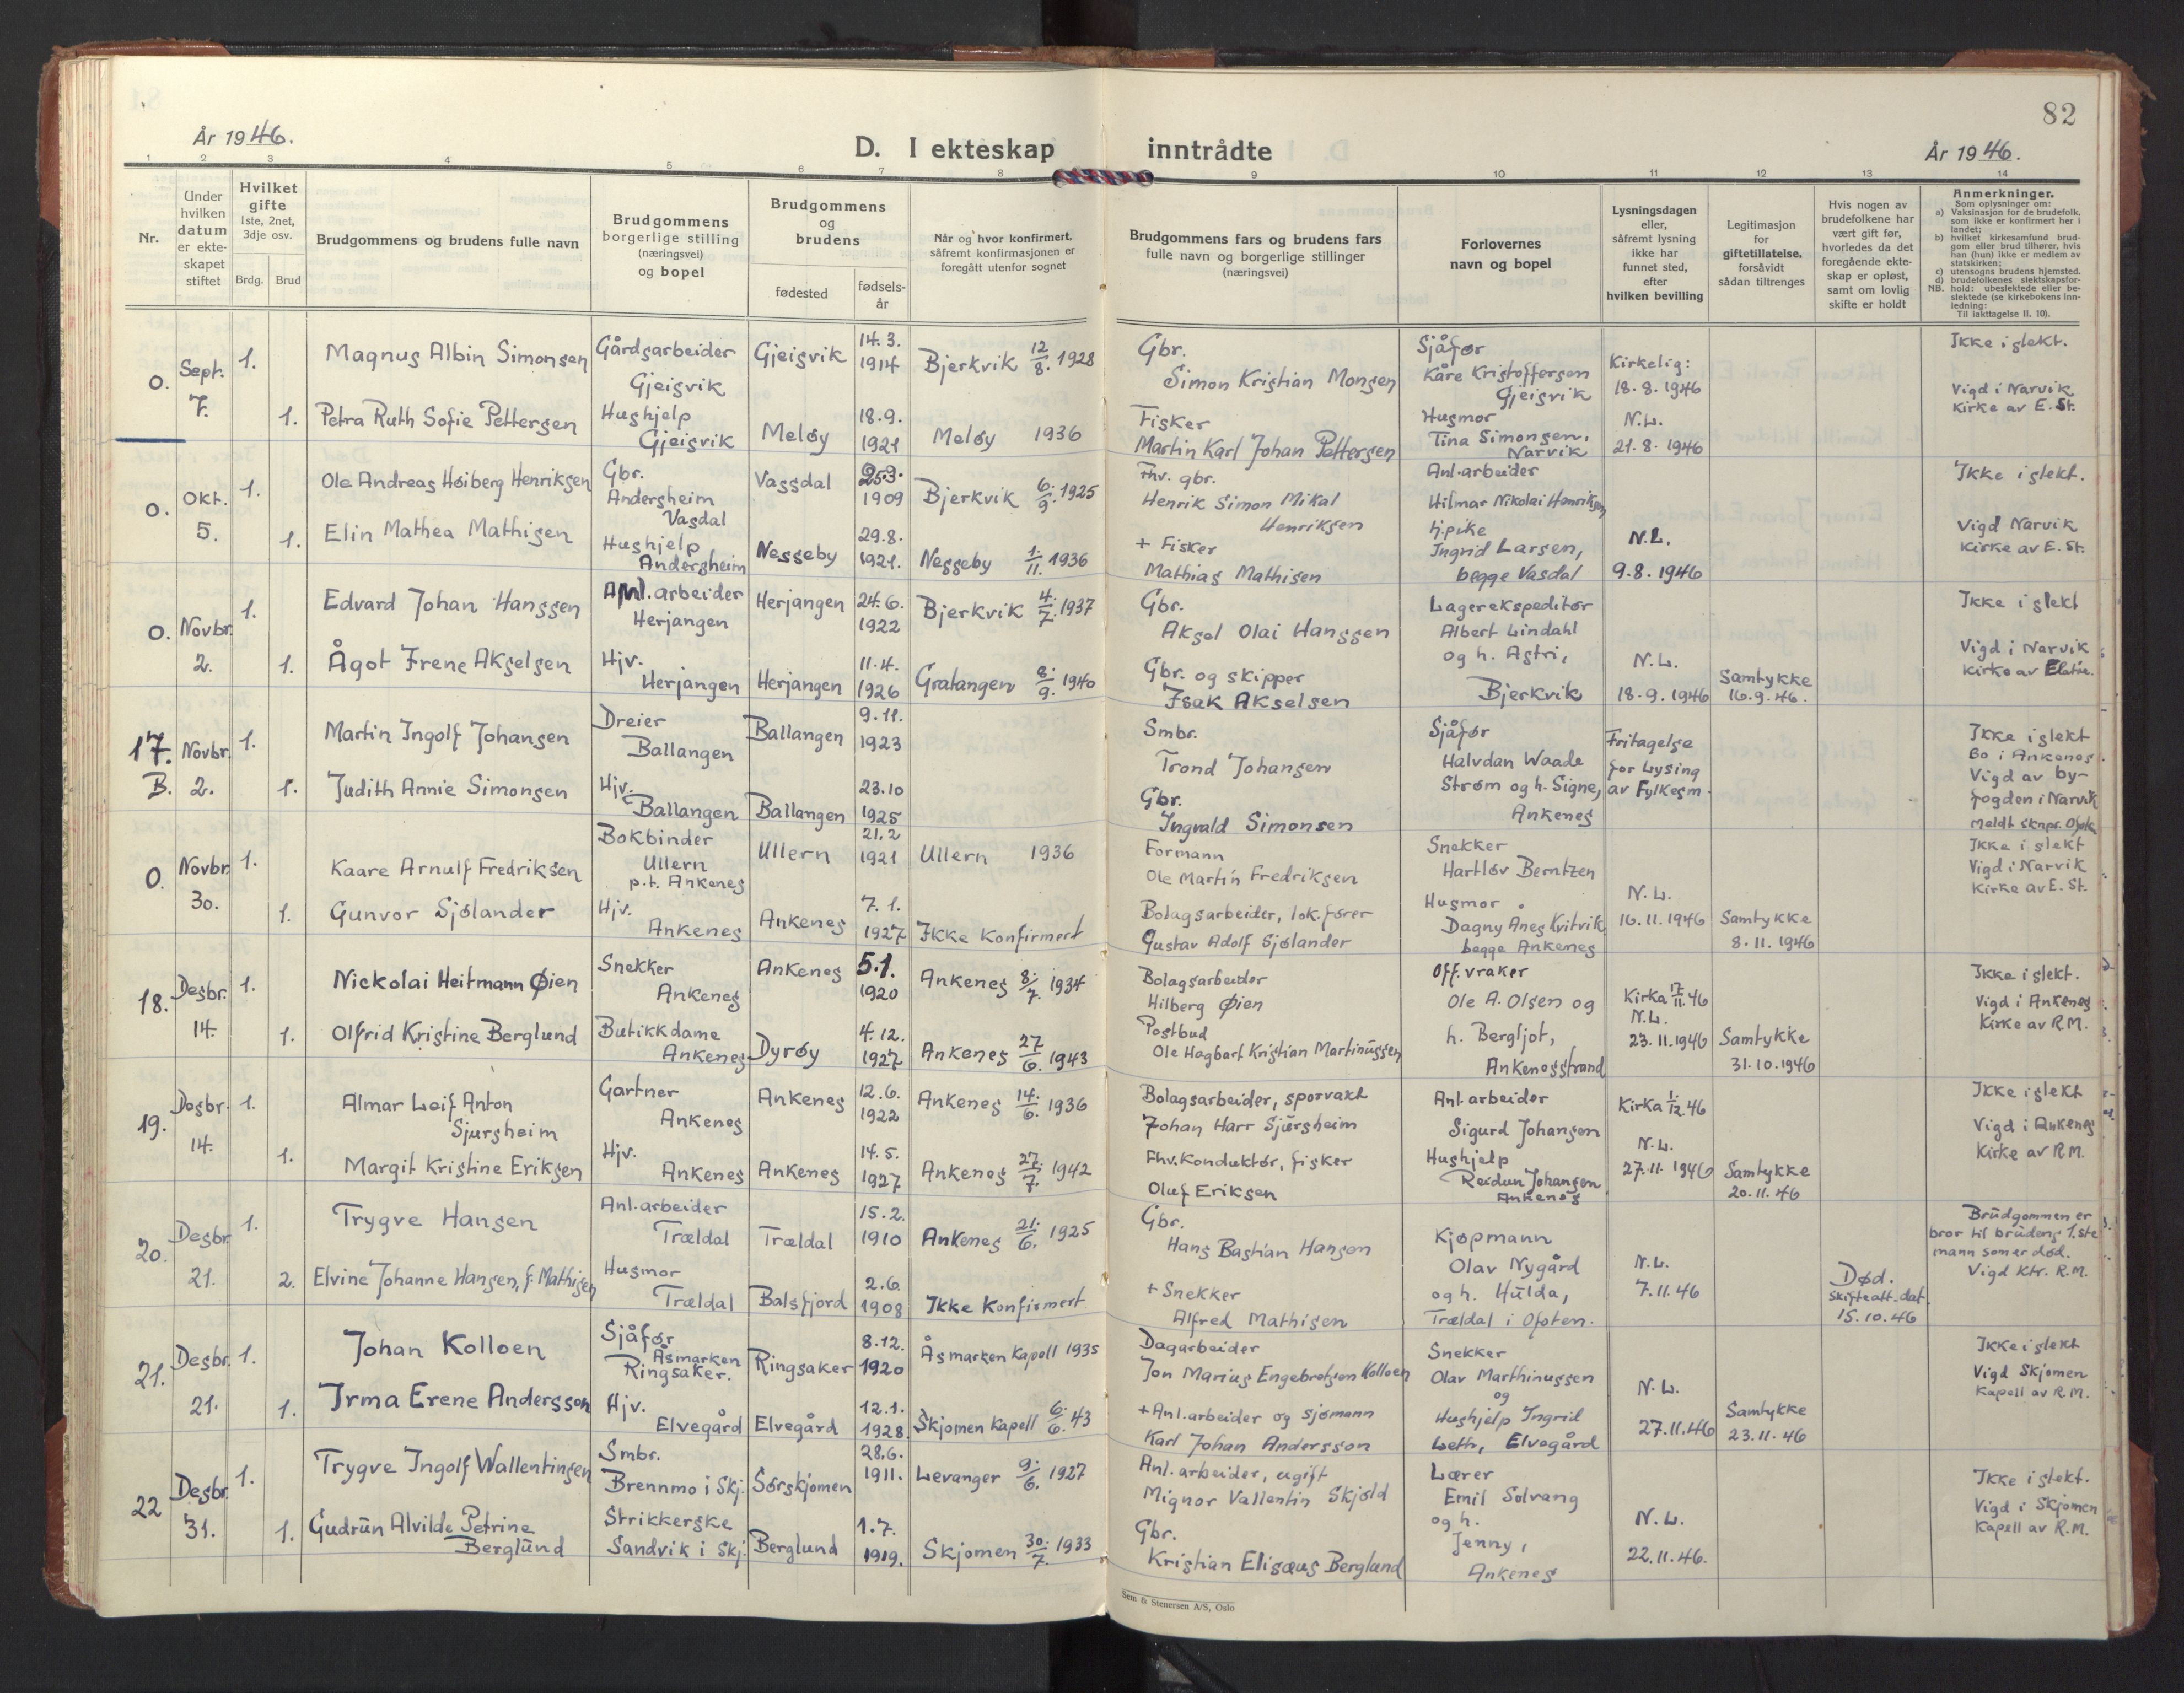 82
År 1946.
D. I ekteskap inntrådte
År 1946.
1 2 3 4 5 6 7 8 9 10 11 12 13 14
Nr.
Under
hvilken
datum
er ekte-
skapet
stiftet
Hvilket
gifte
1ste, 2net,
3dje osv.
Brdg. Brud
Brudgommens og brudens fulle navn
Brudgommens
borgerlige stilling
(næringsvei)
og bopel
Brudgommens
og
brudens
fødested
fødsels-
år
Når og hvor konfirmert,
såfremt konfirmasjonen er
foregått utenfor sognet
Brudgommens fars og brudens fars
fulle navn og borgerlige stillinger
(næringsvei)
Forlovernes
navn og bopel
Lysningsdagen
eller,
såfremt lysning
ikke har
funnet sted,
efter
hvilken bevilling
Legitimasjon
for
giftetillatelse,
forsåvidt
sådan tiltrenges
Hvis nogen av
brudefolkene har
vært gift før,
hvorledes da det
foregående ekte-
skap er opløst,
samt om lovlig
skifte er holdt
Anmerkninger.
Som oplysninger om:
a) Vaksinasjon for de brudefolk,
som ikke er konfirmert her i
landet;
b) hvilket kirkesamfund brud-
gom eller brud tilhører, hvis
han (hun) ikke er medlem av
statskirken;
c) utensogns brudens hjemsted.
d) brudefolkenes slektskapsfor-
NB. hold: ubeslektede eller be-
slektede (se kirkebokens Inn-
ledning:
Til iakttagelse II. 10).
0. Sept. 7. 1. Magnus Albin Simonsen
Gårdsarbeider
Gjeisvik
Gjeisvik
14. 3.
1914
Bjerkvik 12/8. 1928
Gbr.
Simon Kristian Monsen
Sjåfør
Kåre Kristoffersen
Gjeisvik
Kirkelig:
18. 8. 1946
Ikke i slekt.
1. Petra Ruth Sofie Pettersen
Hushjelp
Gjeisvik
Meløy
18.9.
1921
Meløy 1936
Fisker
Martin Karl Johan Pettersen
Husmor
Tina Simonsen,
Narvik
N.L.
21. 8. 1946
Vigd i Narvik
Kirke av E. St.
0. Okt. 5. 1. Ole Andreas Høiberg Henriksen
Gbr.
Andersheim
Vasdal
Vassdal
25.9.
1909
Bjerkvik 6./9. 1925
Fhv. gbr.
Henrik Simon Mikal
Henriksen
Anl.arbeider
Hilmar Nikolai Henriksen
Ikke i slekt.
1. Elin Mathea Mathisen
Hushjelp
Andersheim
Nesseby
29.8.
1921.
Nesseby 1./11. 1936
+ Fisker
Mathias Mathisen
hj.pike
Ingrid Larsen,
begge Vasdal
N.L.
9.8. 1946
Vigd Narvik
Kirke av E. St.
0. Novbr. 2. 1. Edvard Johan Hanssen
Anl.arbeider
Herjangen
Herjangen
24. 6.
1922
Bjerkvik 4./7. 1937
Gbr.
Aksel Olai Hanssen
Lagerekspeditør
Albert Lindahl
og h. Astri,
Bjerkvik
Ikke i slekt
1. Ågot Irene Akselsen
Hjv.
Herjangen
Herjangen
11. 4.
1926
Gratangen 8./9. 1940
Gbr. og skipper
Isak Akselsen
N.L.
18. 9. 1946
Samtykke
16.9. 46.
Vigd i Narvik
Kirke av
17. B. Novbr. 2. 1. Martin Ingolf Johansen
Dreier
Ballangen
Ballangen
9. 11.
1923
Smbr.
Trond Johansen
Sjåfør
Halvdan Waade
Strøm og h. Signe,
Ankenes
Fritagelse
for lysing
av Fylkesm.
Ikke i slekt
Bo i Ankenes.
Vigd av by-
fogden i Narvik
meldt sknpr.
1. Judith Annie Simonsen
Hjv.
Ballangen
Ballangen
23.10
1925
Gbr.
Ingvald Simonsen
0. Novbr. 30. 1. Kaare Arnulf Fredriksen
Bokbinder
Ullern
p.t. Ankenes
Ullern
21.2
1921
Ullern 1936
Formann
Ole Martin Fredriksen
Snekker
Hartløv Berntzen
Ikke i slekt
Vigd i Narvik
Kirke av E. St.
1. Gunvor Sjølander
Hjv.
Ankenes
Ankenes
7. 1.
1927
Ikke Konfirmert
Bolagsarbeider, lok.fører
Gustav Adolf Sjølander
Husmor
Dagny Anes Kvitvik
begge Ankenes
N.L.
16.11.1946
Samtykke
8. 11. 1946
18. Desbr. 14. 1. Nickolai Heitmann Øien
Snekker
Ankenes
Ankenes
5.1.
1920
Ankenes 8./7. 1934
Bolagsarbeider
Hilberg Øien
Off. vraker
Ole A. Olsen og
h. Bergljot,
Ankenesstrand
Kirka 17/11. 46
N.L.
23.11.1946
Ikke i slekt.
Vigd i Ankenes
Kirke av R.M.
1. Olfrid Kristine Berglund
Butikkdame
Ankenes
Dyrøy
4. 12.
1927
Ankenes 27/6. 1943
Postbud
Ole Hagbart Kristian Martinussen
Samtykke
31. 10. 1946
19. Desbr. 14. 1. Almar Leif Anton
Sjursheim
Gartner
Ankenes
Ankenes
12. 6.
1922
Ankenes 14./6. 1936
Bolagsarbeider, sporvakt
Johan Harr Sjursheim
Anl. arbeider
Sigurd Johansen
Kirka 1./12. 46
Ikke i slekt
Vigd i Ankenes
Kirke av R.M.
1. Margit Kristine Eriksen
Hjv.
Ankenes
Ankenes
14. 5.
1927
Ankenes 27./7. 1942
Fhv. Konduktør, fisker
Oluf Eriksen
Hushjelp
Reidun Johansen
Ankenes
N.L.
27. 11. 1946
Samtykke
20. 11. 46
20. Desbr. 21. 1. Trygve Hansen
Anl.arbeider
Trældal
Trældal
15. 2.
1910
Ankenes 21./6. 1925
Gbr.
Hans Bastian Hansen
Kjøpmann
Olav Nygård
og h. Hulda,
Trældal i Ofoten.
N.L.
7.11.46
Brudgommen er
bror til brudens 1.ste
mann som er død.
Vigd ktr. R.M.
2. Elvine Johanne Hansen, f. Mathisen
Husmor
Trældal
Balsfjord
2. 6.
1908
Ikke Konfirmert
+ Snekker
Alfred Mathisen
Død.
Skifteatt. dat.
15. 10. 46
21. Desbr. 21. 1. Johan Kolloen
Sjåfør
Åsmarken
Ringsaker.
Ringsaker
8.12.
1920
Åsmarken Kapell 1935
Dagarbeider
Jon Marius Engebretsen Kolloen
Snekker
Olav Marthinussen
og
Hushjelp Ingrid
Leth, Elvegård
Ikke i slekt
Vigd Skjomen
Kapell av R.M.
1. Irma Erene Andersson
Hjv.
Elvegård
Elvegård
12. 1.
1928.
Skjomen Kapell 6./6. 43
+ Anl.arbeider og sjømann
Karl Johan Andersson
N.L.
27.11.46
Samtykke
23.11. 46
22 Desbr. 31. 1. Trygve Ingolf Wallentinsen
Smbr.
Brennmo i Skj.
Sørskjomen
28.6.
1911.
Levanger 9./6. 1927
Anl. arbeider, ugift
Mignor Vallentin Skjold
Lærer
Emil Solvang
og h.
Jenny,
Ankenes
Ikke i slekt.
Vigd i Skjomen
Kapell av R.M.
1. Gudrun Alvilde Petrine
Berglund
Strikkerske
Sandvik i Skj.
Berglund
1. 7.
1919.
Skjomen 30./7. 1933
Gbr.
Kristian Elisæus Berglund
N.L.
22.11.46.
Sem & Stenersen A/S, Oslo